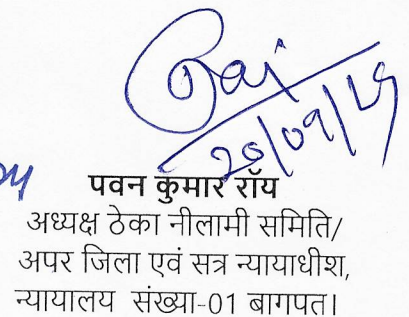 पवन कुमार रॉय
अध्यक्ष ठेका नीलामी समिति/
अपर जिला एवं सत्र न्यायाधीश,
न्यायालय संख्या-01 बागपत।